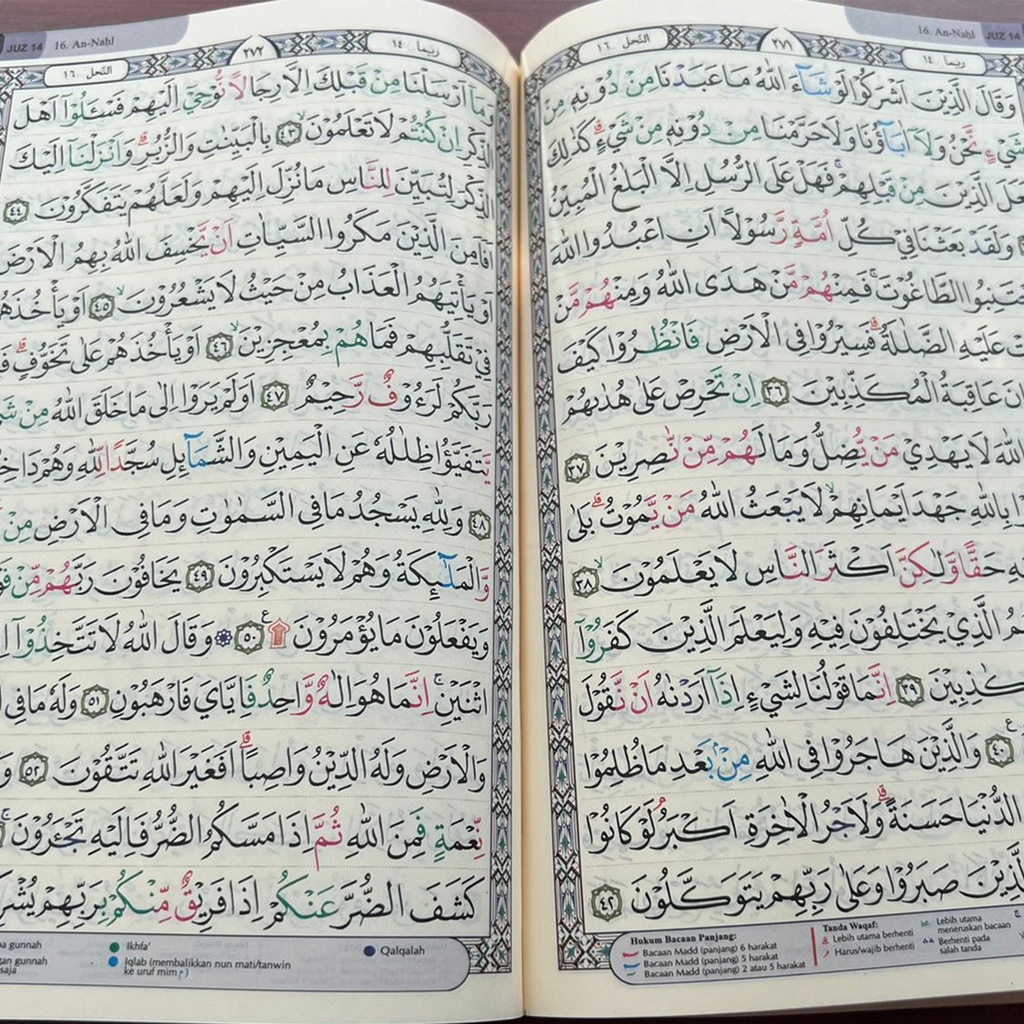 JUZ 14
16. An-Naḥl
ربما ١٤
٢٧١
النحل ١٦
وَقَالَ الَّذِيْنَ اَشْرَكُوْا لَوْ شَاۤءَ اللّٰهُ مَا عَبَدْنَا مِنْ دُوْنِهٖ مِنْ
شَيْءٍ نَّحْنُ وَلَآ اٰبَاۤؤُنَا وَلَا حَرَّمْنَا مِنْ دُوْنِهٖ مِنْ شَيْءٍ ۗ كَذٰلِكَ
الَّذِيْنَ مِنْ قَبْلِهِمْ ۚ فَهَلْ عَلَى الرُّسُلِ اِلَّا الْبَلٰغُ الْمُبِيْنُ
وَلَقَدْ بَعَثْنَا فِيْ كُلِّ اُمَّةٍ رَّسُوْلًا اَنِ اعْبُدُوا اللّٰهَ
الطَّاغُوْتَ ۚ فَمِنْهُمْ مَّنْ هَدَى اللّٰهُ وَمِنْهُمْ مَّنْ
عَلَيْهِ الضَّلٰلَةُ ۗ فَسِيْرُوْا فِى الْاَرْضِ فَانْظُرُوْا كَيْفَ
عَاقِبَةُ الْمُكَذِّبِيْنَ ٣٦ اِنْ تَحْرِصْ عَلٰى هُدٰىهُمْ
اللّٰهَ لَا يَهْدِيْ مَنْ يُّضِلُّ وَمَا لَهُمْ مِّنْ نّٰصِرِيْنَ ٣٧
بِاللّٰهِ جَهْدَ اَيْمَانِهِمْ ۙ لَا يَبْعَثُ اللّٰهُ مَنْ يَّمُوْتُ ۗ بَلٰى
حَقًّا وَّلٰكِنَّ اَكْثَرَ النَّاسِ لَا يَعْلَمُوْنَ ۙ ٣٨
الَّذِيْ يَخْتَلِفُوْنَ فِيْهِ وَلِيَعْلَمَ الَّذِيْنَ كَفَرُوْٓا
كٰذِبِيْنَ ٣٩ اِنَّمَا قَوْلُنَا لِشَيْءٍ اِذَآ اَرَدْنٰهُ اَنْ نَّقُوْلَ
٤٠ وَالَّذِيْنَ هَاجَرُوْا فِى اللّٰهِ مِنْۢ بَعْدِ مَا ظُلِمُوْا
الدُّنْيَا حَسَنَةً ۗ وَلَاَجْرُ الْاٰخِرَةِ اَكْبَرُ ۘ لَوْ كَانُوْا
الَّذِيْنَ صَبَرُوْا وَعَلٰى رَبِّهِمْ يَتَوَكَّلُوْنَ ٤٢
Hukum Bacaan Panjang:
Bacaan Madd (panjang) 6 harakat
Bacaan Madd (panjang) 5 harakat
Bacaan Madd (panjang) 2 atau 5 harakat
Tanda Waqaf:
Lebih utama berhenti
Harus/wajib berhenti
Lebih utama meneruskan bacaan
Berhenti pada salah tanda
JUZ 14
16. An-Naḥl
ربما ١٤
٢٧٢
النحل ١٦
وَمَآ اَرْسَلْنَا مِنْ قَبْلِكَ اِلَّا رِجَالًا نُّوْحِيْٓ اِلَيْهِمْ فَسْـَٔلُوْٓا اَهْلَ
الذِّكْرِ اِنْ كُنْتُمْ لَا تَعْلَمُوْنَ ۙ ٤٣ بِالْبَيِّنٰتِ وَالزُّبُرِ ۗ وَاَنْزَلْنَآ اِلَيْكَ
الذِّكْرَ لِتُبَيِّنَ لِلنَّاسِ مَا نُزِّلَ اِلَيْهِمْ وَلَعَلَّهُمْ يَتَفَكَّرُوْنَ ٤٤
اَفَاَمِنَ الَّذِيْنَ مَكَرُوا السَّيِّاٰتِ اَنْ يَّخْسِفَ اللّٰهُ بِهِمُ الْاَرْضَ
اَوْ يَأْتِيَهُمُ الْعَذَابُ مِنْ حَيْثُ لَا يَشْعُرُوْنَ ۙ ٤٥ اَوْ يَأْخُذَهُمْ
فِيْ تَقَلُّبِهِمْ فَمَا هُمْ بِمُعْجِزِيْنَ ۙ ٤٦ اَوْ يَأْخُذَهُمْ عَلٰى تَخَوُّفٍ ۗ
رَبَّكُمْ لَرَءُوْفٌ رَّحِيْمٌ ٤٧ اَوَلَمْ يَرَوْا اِلٰى مَا خَلَقَ اللّٰهُ مِنْ
يَّتَفَيَّؤُا ظِلٰلُهٗ عَنِ الْيَمِيْنِ وَالشَّمَاۤىِٕلِ سُجَّدًا لِّلّٰهِ وَهُمْ
٤٨ وَلِلّٰهِ يَسْجُدُ مَا فِى السَّمٰوٰتِ وَمَا فِى الْاَرْضِ مِنْ
وَّالْمَلٰۤىِٕكَةُ وَهُمْ لَا يَسْتَكْبِرُوْنَ ٤٩ يَخَافُوْنَ رَبَّهُمْ مِّنْ
وَيَفْعَلُوْنَ مَا يُؤْمَرُوْنَ ۩ ع ٥٠ ۞ وَقَالَ اللّٰهُ لَا تَتَّخِذُوْٓا
اثْنَيْنِ ۚ اِنَّمَا هُوَ اِلٰهٌ وَّاحِدٌ فَاِيَّايَ فَارْهَبُوْنِ ٥١ وَلَهٗ مَا فِى
وَالْاَرْضِ وَلَهُ الدِّيْنُ وَاصِبًا ۗ اَفَغَيْرَ اللّٰهِ تَتَّقُوْنَ ٥٢
نِّعْمَةٍ فَمِنَ اللّٰهِ ثُمَّ اِذَا مَسَّكُمُ الضُّرُّ فَاِلَيْهِ تَجْـَٔرُوْنَ ۚ
كَشَفَ الضُّرَّ عَنْكُمْ اِذَا فَرِيْقٌ مِّنْكُمْ بِرَبِّهِمْ
gunnah
gunnah
saja
Ikhfa'
Iqlab (membalikkan nun mati/tanwin
ke uruf mim م)
Qalqalah